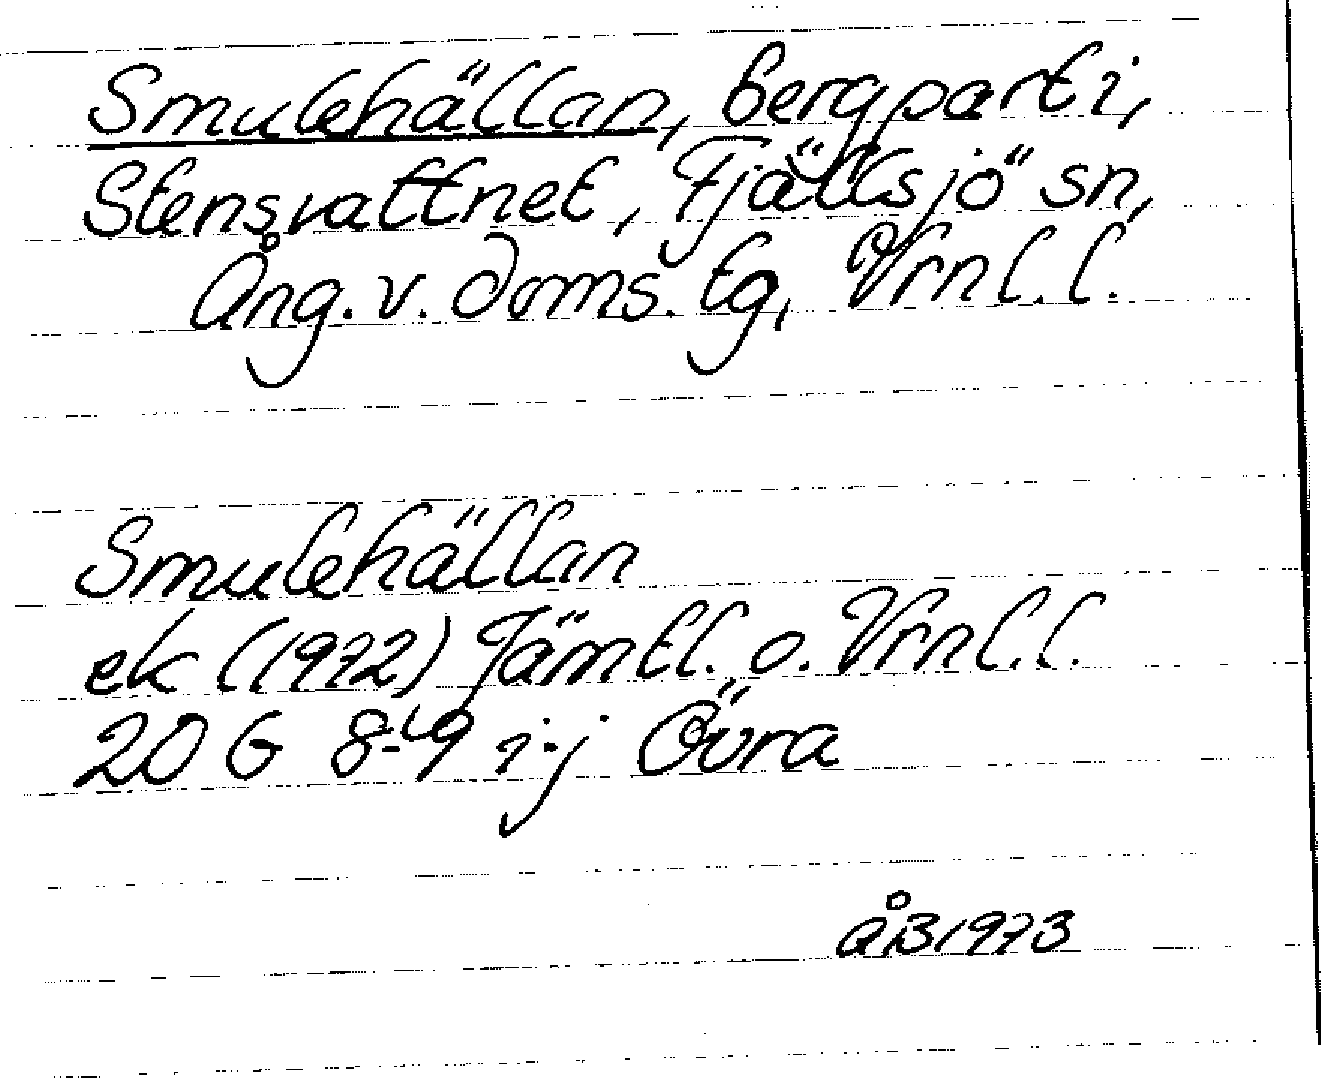 Smulehällan, bergparti,
Stensvattnet, Fjällsjö sn,
Ång. v. doms. tg, Vrnl. l.
Smulehällan
ek (1972) Jämtl. o. Vrnl. l.
20 G 8-9 i-j Övra
åB 1973